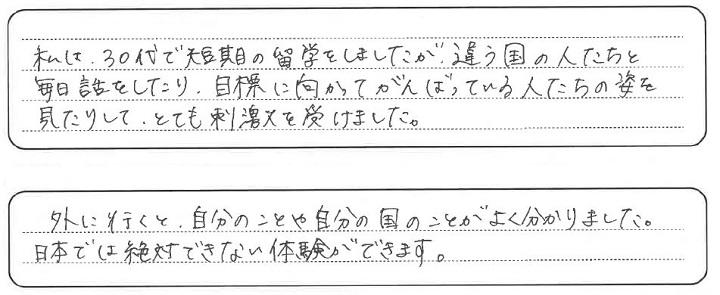 私は、30代で短期の留学をしましたが、違う国の人たちと
毎日話をしたり、目標に向かってがんばっている人たちの姿を
見たりして、とても刺激を受けました。
外に行くと、自分のことや自分の国のことがよく分かりました。
日本では絶対できない体験ができます。